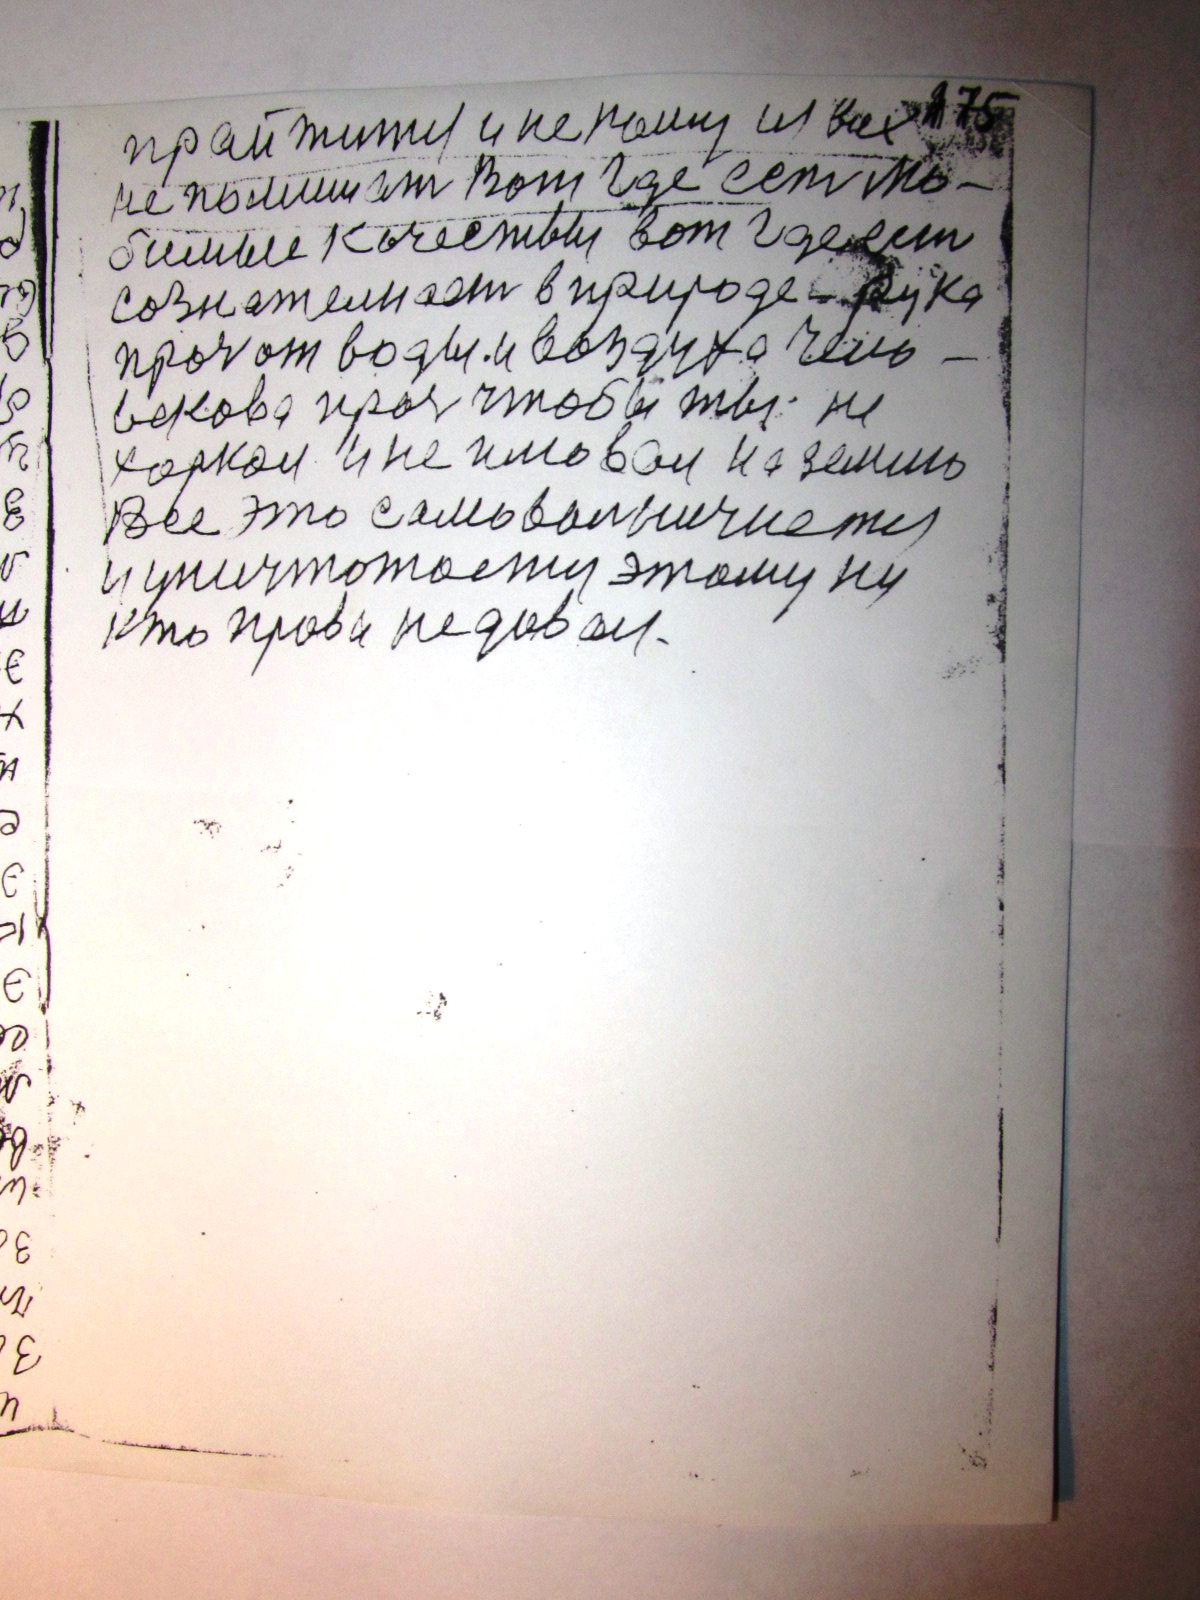 175
прайжити и не кому из вих
не помишает Вот где сет Лю-
бимые качествы вот где ест
сознателнаст в природе - рука
проч от воды и воздуха чело-
века проч чтобы ты не
харкал и не плювал на землю
Все это самоволничиеття
и уничтожаетти этому ни
кто прова не довал.